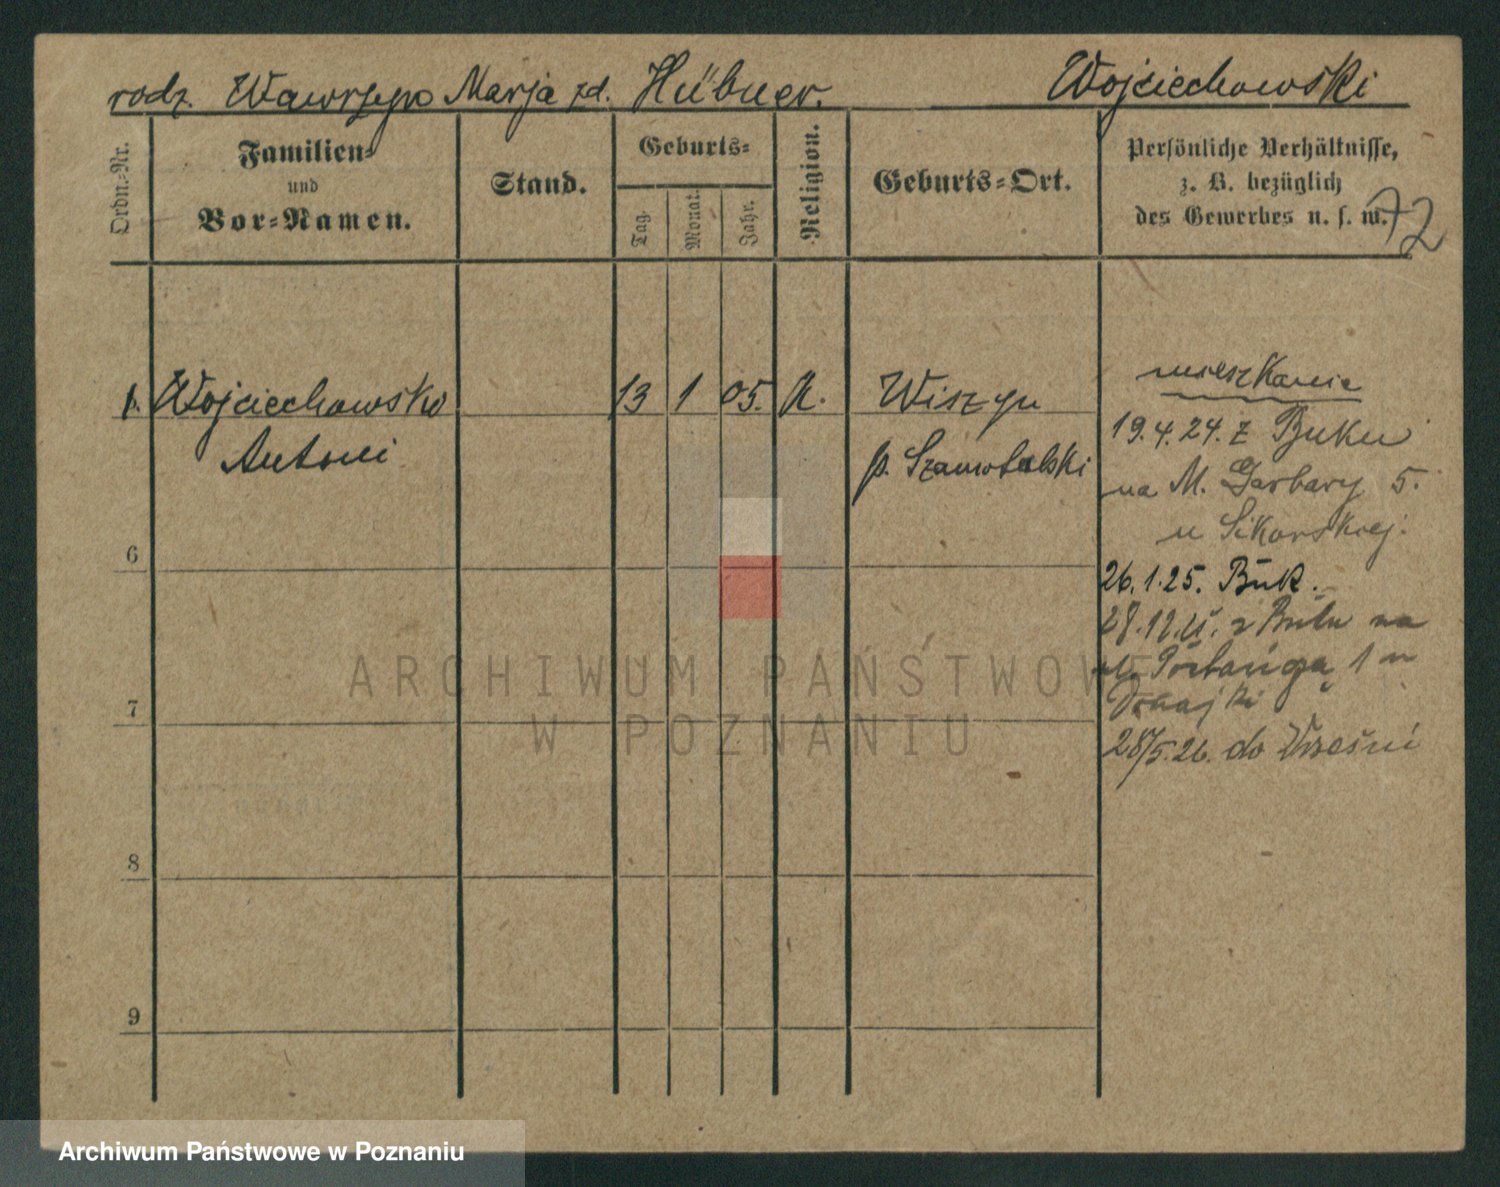 rodz. Wawrzyn Marja zd. Hübner. Wojciechowski
Ordn.-Nr.
Familien-
und
Vor-Namen.
Stand.
Geburts-
Tag.
Monat.
Jahr.
Religion.
Geburts-Ort.
Persönliche Verhältnisse,
z. B. bezüglich
des Gewerbes u. s. w.
72
1. Wojciechowski 13 1 05. K.
Antoni
p. Szamotulski
mieszkanie
19.4.24. z Buku
na M. Garbary 5.
u Sikorskiej.
26.1.25. Buk.
z Buku na
28/5.26. do Wrześni
6
7
8
9
ARCHIWUM PAŃSTWOWE
W POZNANIU
Archiwum Państwowe w Poznaniu